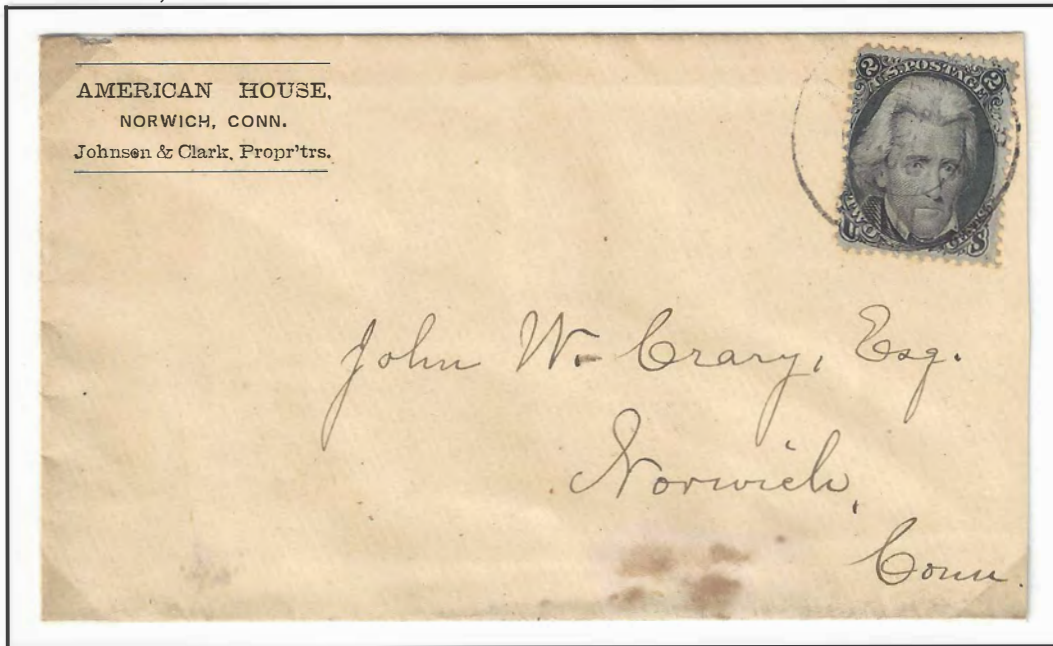 AMERICAN HOUSE,
NORWICH, CONN.
Johnson & Clark, Propr'trs.
2 U.S. POSTAGE 2
TWO CENTS
U S
John W. Crary, Esq.
Norwich,
Conn.